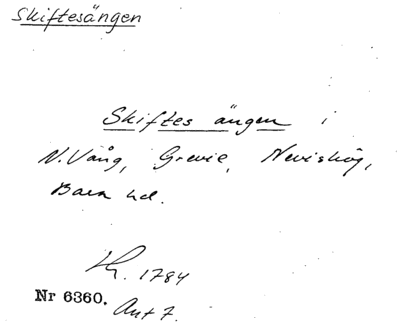 Skiftesängen
Skiftes ängen i
N. Vång, Grevie, Nevishög,
Bara hd.
Kh. 1784
Nr 6360. Ant 7.